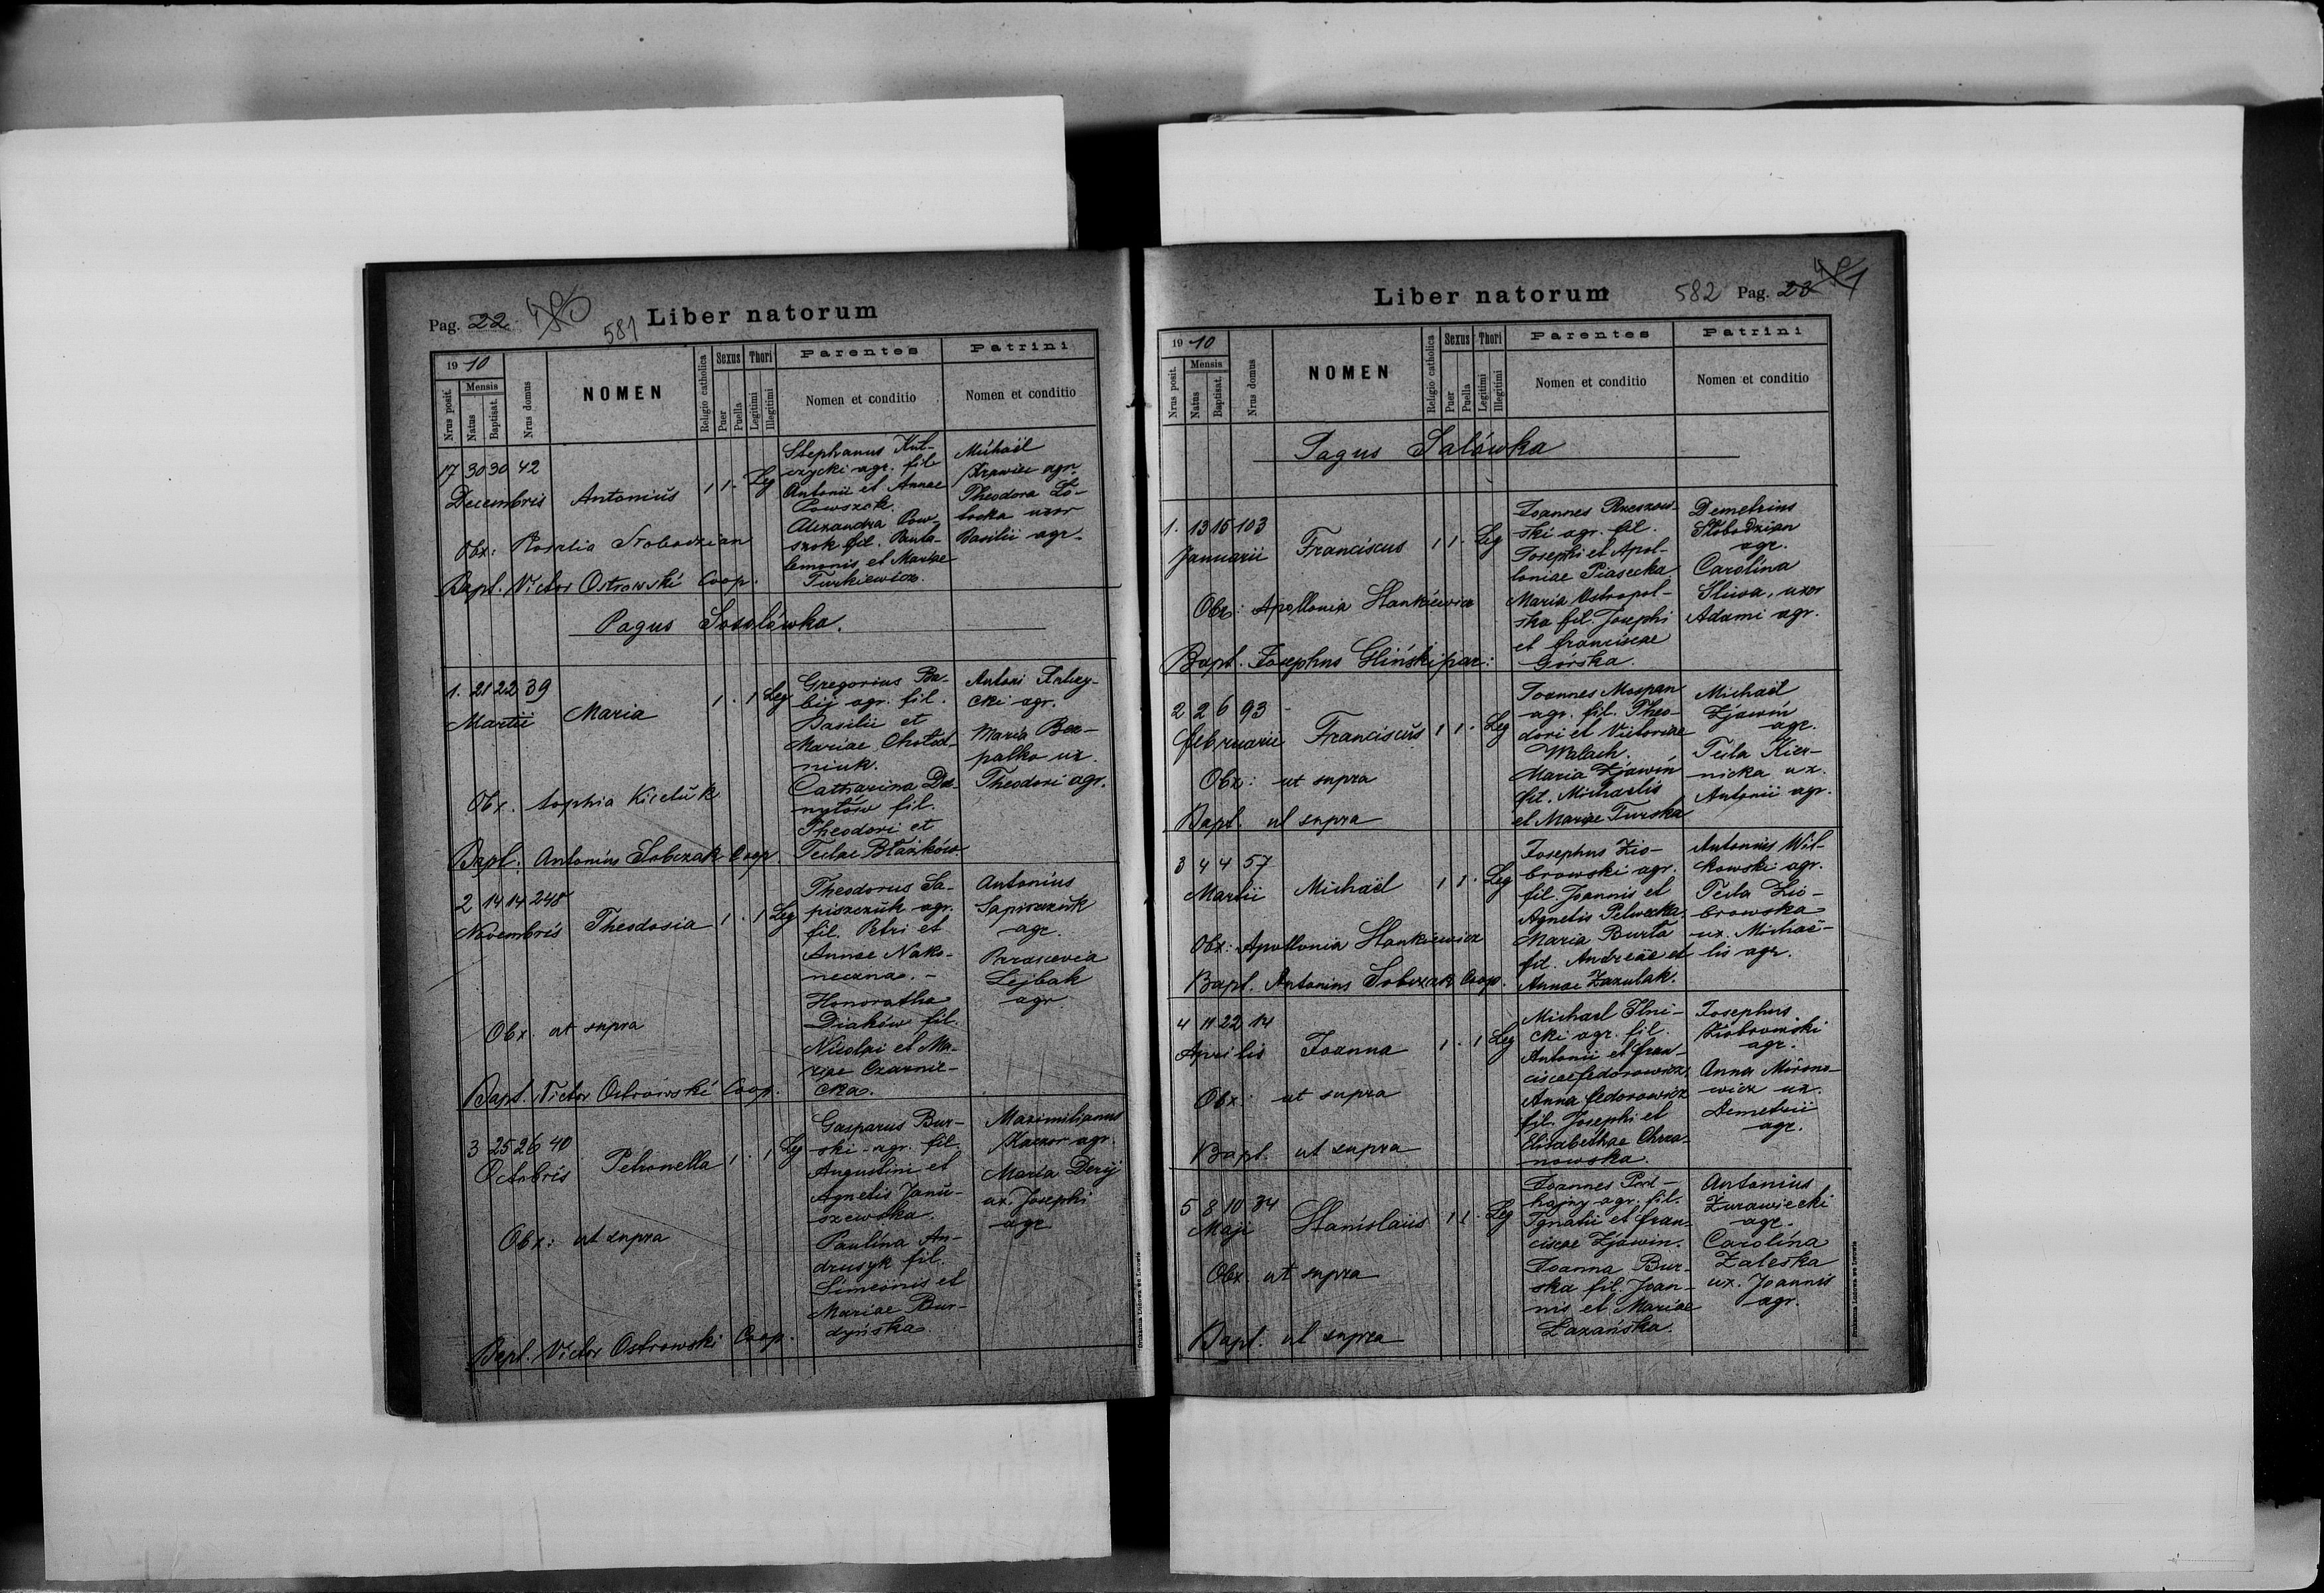 Pag. 22
581
Liber natorum
1910
Nrus posit.
Mensis
Natus
Baptisat.
Nrus domus
NOMEN
Religio catholica
Sexus
Puer
Puella
Thori
Legitimi
Illegitimi
Parentes
Nomen et conditio
Patrini
Nomen et conditio
17 30 30 42
Decembris Antonius 1 1 · Leg
Obx: Rosalia Slobodzian
Bapt. Victor Ostrowski Coop.
Stephanus Kul-
czycki agr. fil.
Antonii et Annae
Powszok.
Alexandra Pow-
szok fil. Panta-
lemonis et Mariae
Turkiewicz.
Michaël
Krawiec agr.
Theodora Zo-
locka uxor
Basilii agr.
Pagus Sosolówka.
1. 21 22 39
Martii Maria 1 · 1 Leg
Obx. Sophia Kieluk
Bapt: Antonius Sobczak Coop.
Gregorius Ba-
bij agr. fil.
Basilii et
Mariae Chołod-
niuk.
Catharina Da-
nyłów fil.
Theodori et
Teclae Błażków.
Antoni
cki agr.
Maria Bez-
palko ux.
Theodori agr.
2 14 14 248
Novembris Theodosia 1 · 1 Leg
Obx. ut supra
Bapt. Victor Ostrowski Coop.
Theodorus Sa-
piszczuk agr.
fil. Petri et
Annae Nako-
neczna. -
Honoratha
Diaków fil.
Nicolai et Ma-
riae Czarnie-
cka.
Antonius
Sapiszczuk
agr.
Parascevia
Lejbak
agr
3 25 26 40
Octobris Petronella 1 · 1 Leg
Obx: ut supra
Bapt. Victor Ostrowski Coop.
Gasparus Bur-
ski agr. fil.
Augustini et
Agnetis Janu-
szewska.
Paulina An-
drusyk fil.
Simeonis et
Mariae Bur-
dyńska.
Maximilianus
Kaczor agr.
Maria Derij
ux. Josephi
agr
Drukarnia Ludowa we Lwowie
Liber natorum
582
Pag. 23
1910
Nrus posit.
Mensis
Natus
Baptisat.
Nrus domus
NOMEN
Religio catholica
Sexus
Puer
Puella
Thori
Legitimi
Illegitimi
Parentes
Nomen et conditio
Patrini
Nomen et conditio
Pagus Salówka
1. 13 16 103
Januarii Franciscus 1 1 · Leg
Obx: Apollonia Stankiewicz
Bapt. Josephus Gliński par:
Joannes Rzeszow-
ski agr. fil.
Josephi et Apol-
loniae Piasecka
Maria Ostropol-
ska fil. Josephi
et Franciscae
Górska.
Demetrius
Slobodzian
agr.
Carolina
Sliwa, uxor
Adami agr.
2 2 6 93
Februarii Franciscus 1 1 · Leg
Obx: ut supra
Bapt. ut supra
Joannes Mospan
agr. fil. Theo-
dori et Victoriae
Walach.
Maria Zjawin
fil. Michaelis
et Mariae Turska
Michaël
Zjawin
agr.
Tecla Kier-
nicka ux.
Antonii agr.
3 4 4 57
Martii Michaël 1 1 · Leg
Obx: Apollonia Stankiewicz
Bapt. Antonius Sobczak Coop.
Josephus Zio-
browski agr.
fil. Joannis et
Agnetis Pelwecka.
Maria Burta
fil. Andreae et
Annae Zazulak.
Antonius Wil-
kowski agr.
Tecla Zio-
browska
ux. Michaë-
lis agr.
4 11 22 14
Aprilis Joanna 1 · 1 Leg
Obx: ut supra
Bapt. ut supra
Michael Ilni-
cki agr. fil.
Antonii et Fran-
ciscae Fedorowicz.
Anna Fedorowicz
fil. Josephi et
Elisabethae Chrza-
nowska.
Josephus
Ziobrowski
agr.
Anna Mirono-
wicz ux.
Demetrii
agr.
5 8 10 34
Maji Stanislaus 1 1 · Leg
Obx. ut supra
Bapt. ut supra
Joannes Pod-
hajny agr. fil.
Ignatii et Fran-
ciscae Zjawin.
Joanna Bur-
ska fil. Joan-
nis et Mariae
Łazańska.
Antonius
Żurawiecki
agr.
Carolina
Zaleska
ux. Joannis
agr.
Drukarnia Ludowa we Lwowie